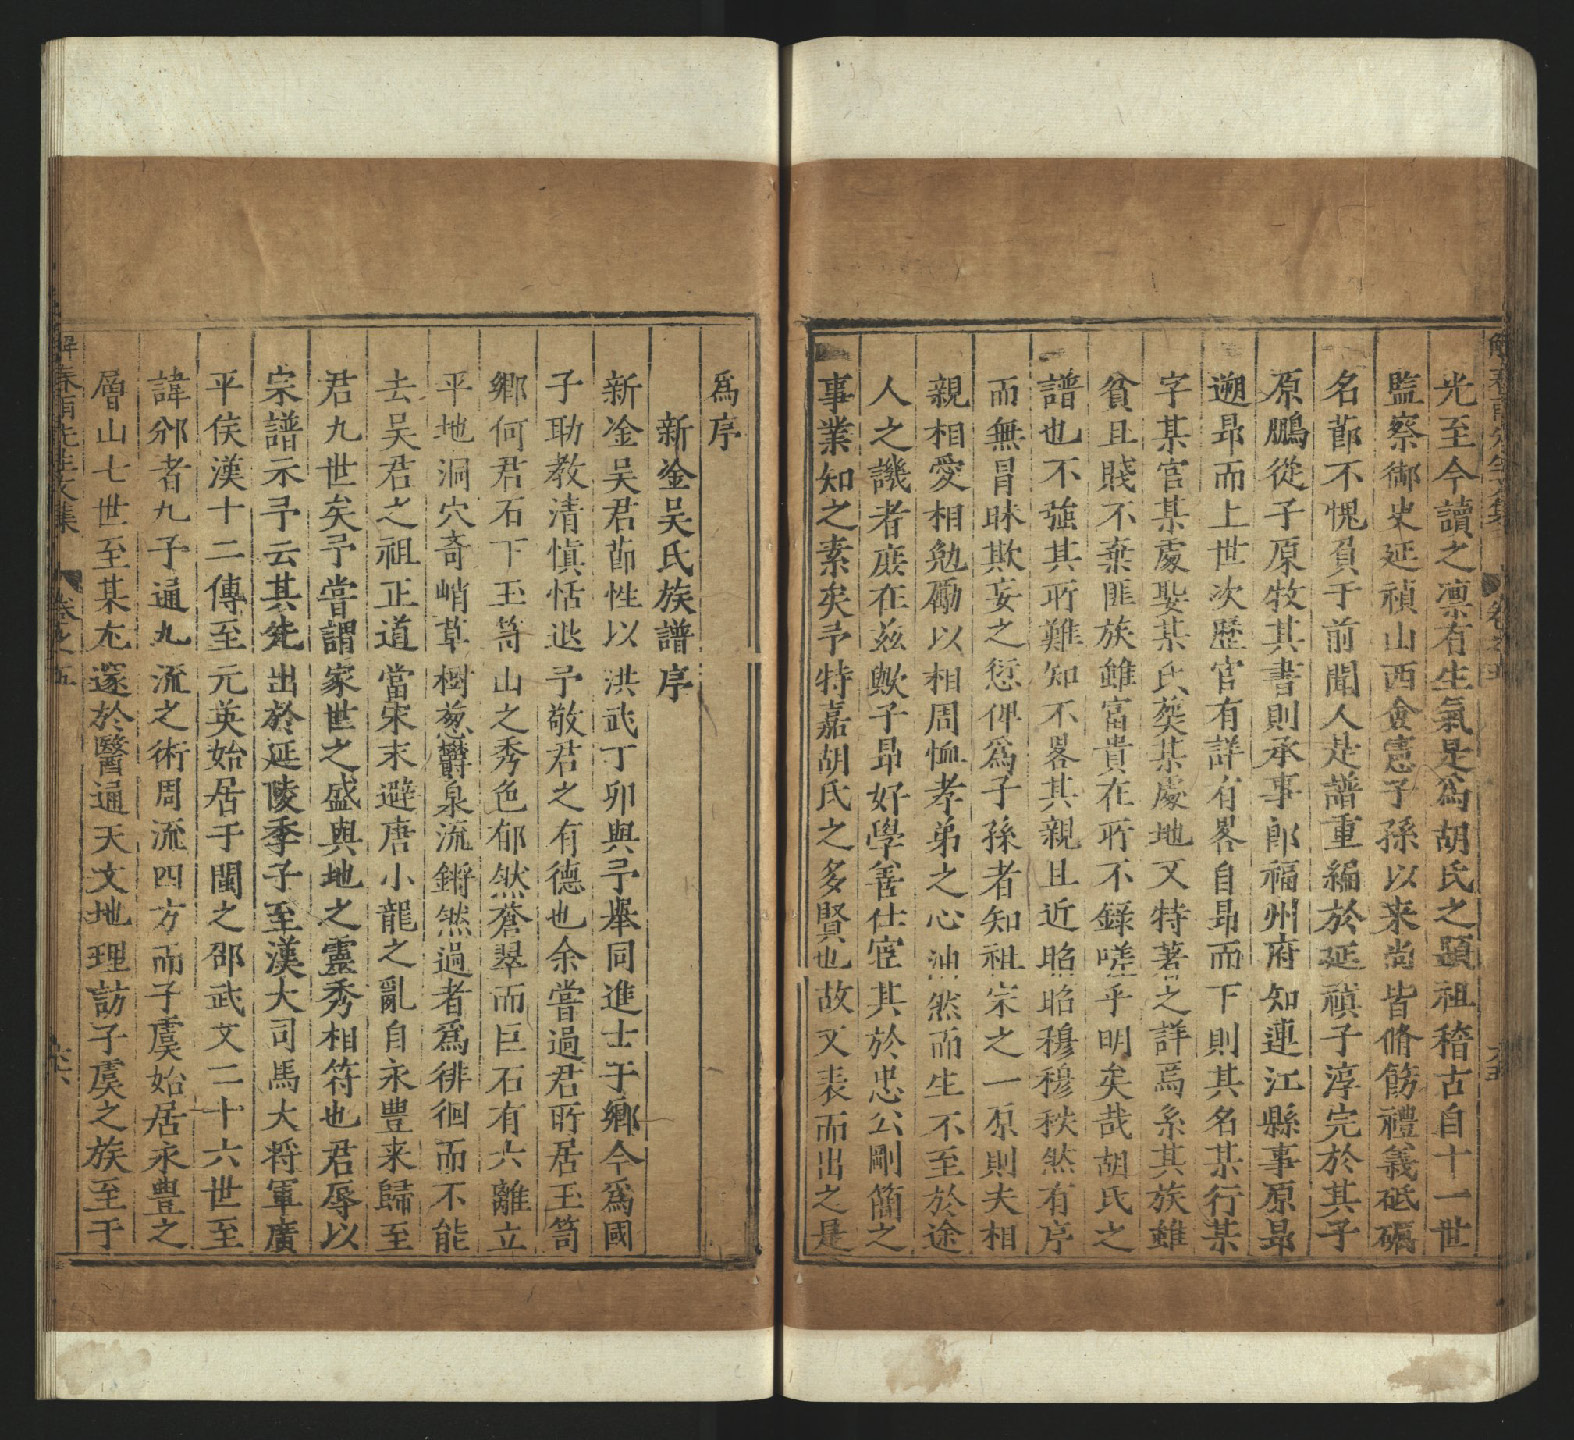 光至今讀之凛有生氣是爲胡氏之顯祖稽古自十一世
監察御史延禎山西僉憲子孫以来尚皆脩飭禮義砥礪
名節不愧負于前聞人是譜重編於延禎子淳完於其子
原鵬從子原牧其書則承事郎福州府知連江縣事原昻
遡昻而上世次歷官有詳有畧自昻而下則其名某行某
字某官某處娶某氏葵某處地又特著之詳焉系其族雖
貧且賤不棄匪族雖富貴在所不錄嗟乎明矣哉胡氏之
譜也不強其所難知不畧其親且近昭昭穆穆秩然有序
而無冐昧欺妄之愆俾爲子孫者知祖宗之一原則夫相
親相愛相勉勵以相周恤孝弟之心油然而生不至於途
人之譏者庶在兹歟子昻好學善仕宦其於忠公剛簡之
事業知之素矣予特嘉胡氏之多賢也故又表而出之是
爲序
新淦吴氏族譜序
新淦吴君節性以洪武丁卯與予舉同進士于鄉今爲國
子助教清愼恬退予敬君之有德也余嘗過君所居玉笥
鄉何君石下玉笥山之秀色郁然蒼翠而巨石有六離立
平地洞穴竒峭草樹葱欝泉流鏘然過者爲徘徊而不能
去吴君之祖正道當宋末避唐小龍之亂自永豊来歸至
君九世矣予嘗謂家世之盛與地之靈秀相符也君辱以
宗譜示予云其先出於延陵季子至漢大司馬大将軍廣
平侯漢十二傳至元英始居于閩之邵武又二十六世至
諱邠者九子通九流之術周流四方而子虞始居永豊之
層山七世至某尤邃於醫通天文地理訪子虞之族至于
解春雨先生文集 卷之五 六六